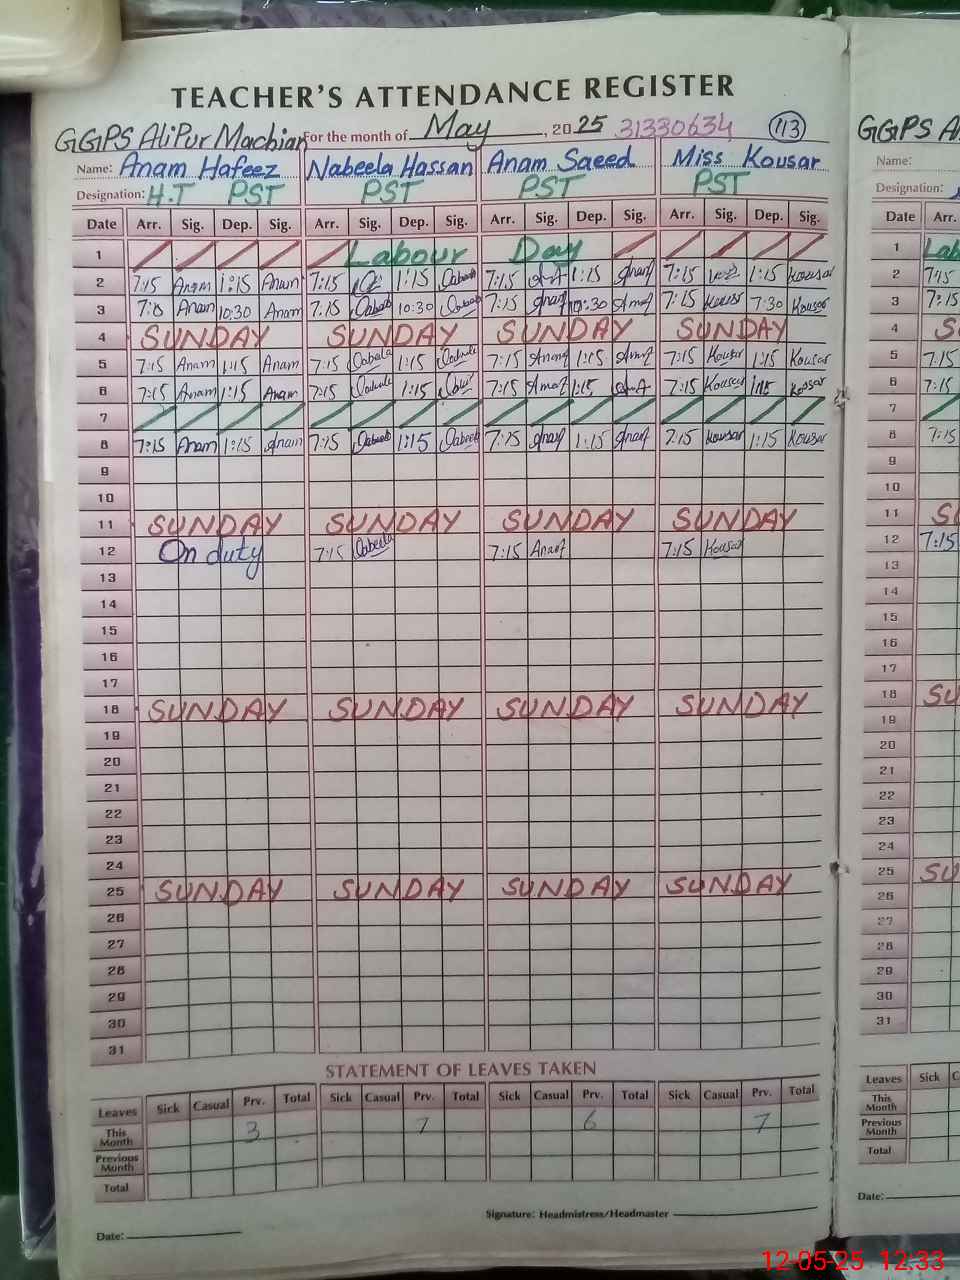 TEACHER'S ATTENDANCE REGISTER
GGPS AliPur Machian For the month of May, 2025 31330634 113
Name: Anam Hafeez Nabeela Hassan Anam Saeed Miss Kousar
Designation: H.T PST PST PST PST
Date Arr. Sig. Dep. Sig. Arr. Sig. Dep. Sig. Arr. Sig. Dep. Sig. Arr. Sig. Dep. Sig.
1 Labour Day
2 7:15 Anam 1:15 Anam 7:15 1:15 7:15 1:15 7:15 1:15 Kousar
3 Anam 10:30 Anam 7:15 10:30 7:15 10:30 7:15 Kousr 7:30 Kousar
4 SUNDAY SUNDAY SUNDAY SUNDAY
5 7:15 Anam 1:15 Anam 7:15 1:15 7:15 1:15 7:15 Kousar 1:15 Kousar
6 7:15 Anam 1:15 Anam 7:15 1:15 7:15 1:15 7:15 Kousar 1:15 Kousar
7
8 7:15 Anam 1:15 Anam 7:15 1:15 7:15 1:15 7:15 Kousar 1:15 Kousar
9
10
11 SUNDAY SUNDAY SUNDAY SUNDAY
12 On duty 7:15 7:15 7:15 Kousar
13
14
15
16
17
18 SUNDAY SUNDAY SUNDAY SUNDAY
19
20
21
22
23
24
25 SUNDAY SUNDAY SUNDAY SUNDAY
26
27
28
29
30
31
STATEMENT OF LEAVES TAKEN
Leaves Sick Casual Prv. Total Sick Casual Prv. Total Sick Casual Prv. Total Sick Casual Prv. Total
This Month 3 7 6 7
Previous Month
Total
Signature: Headmistress/Headmaster
Date:
GGPS A
Name:
Designation:
Date Arr.
1 Lab
2 7:15
3 7:15
4 S
5 7:15
6 7:15
7
8 7:15
9
10
11 S
12 7:15
13
14
15
16
17
18 SU
19
20
21
22
23
24
25 SU
26
27
28
29
30
31
Leaves Sick C
This Month
Previous Month
Total
Date:
12-05-25 12:33